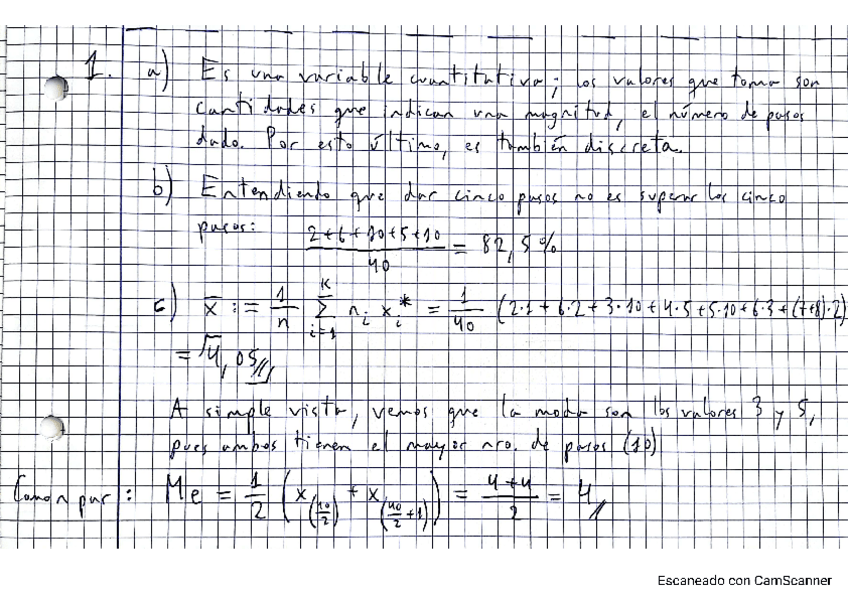 1. a) Es una variable cuantitativa; los valores que toma son
cantidades que indican una magnitud, el número de pasos
dado. Por esto último, es también discreta.
b) Entendiendo que dar cinco pasos no es superar los cinco
pasos: (2+6+10+5+10)/40 = 82,5%
c) x̄ := 1/n Σ_{i=1}^{K} n_i x_i^* = 1/40 (2·1 + 6·2 + 3·10 + 4·5 + 5·10 + 6·3 + (7+8)·2)
= 4,05
A simple vista, vemos que la moda son los valores 3 y 5,
pues ambos tienen el mayor nro. de pasos (10)
Como n par: Me = 1/2 (x_(40/2) + x_(40/2+1)) = (4+4)/2 = 4
Escaneado con CamScanner